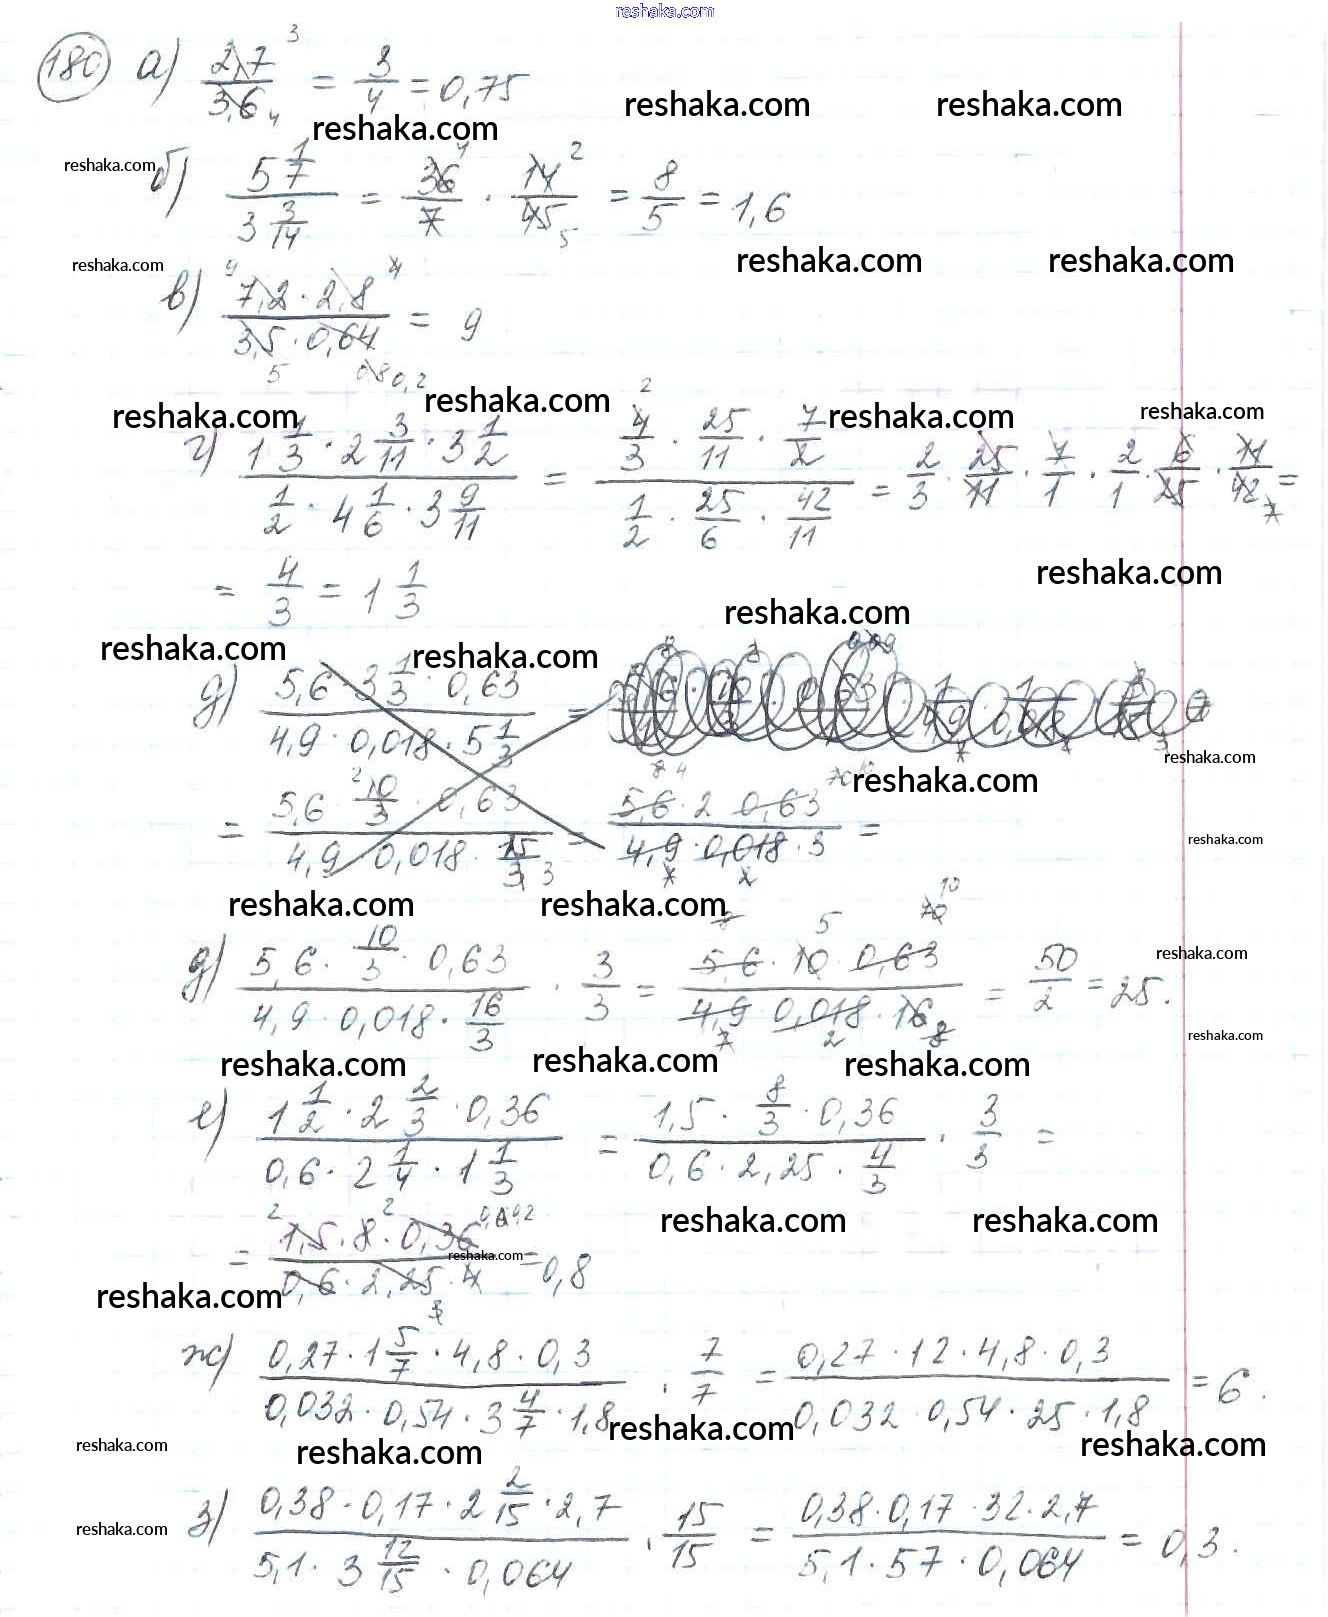 reshaka.com
180 а) 2,7/3,6 = 3/4 = 0,75
reshaka.com reshaka.com
reshaka.com
reshaka.com
б) 5 1/7 / 3 3/14 = 36/7 · 14/45 = 8/5 = 1,6
reshaka.com reshaka.com
reshaka.com
в) 7,2 · 2,8 / 3,5 · 0,64 = 9
reshaka.com reshaka.com reshaka.com reshaka.com
г) 1 1/3 · 2 3/11 · 3 1/2 / 1/2 · 4 1/6 · 3 9/11 = 4/3 · 25/11 · 7/2 / 1/2 · 25/6 · 42/11 = 2/3 · 25/11 · 7/1 · 2/1 · 6/25 · 11/42 =
= 4/3 = 1 1/3
reshaka.com
reshaka.com
reshaka.com reshaka.com
д) 5,6 · 3 1/3 · 0,63 / 4,9 · 0,018 · 5 1/3 =
reshaka.com
reshaka.com
= 5,6 · 10/3 · 0,63 / 4,9 · 0,018 · 15/3 = 5,6 · 2 · 0,63 / 4,9 · 0,018 · 3 =
reshaka.com
reshaka.com reshaka.com
reshaka.com
д) 5,6 · 10/3 · 0,63 / 4,9 · 0,018 · 16/3 · 3/3 = 5,6 · 10 · 0,63 / 4,9 · 0,018 · 16 = 50/2 = 25.
reshaka.com
reshaka.com reshaka.com reshaka.com
е) 1 1/2 · 2 2/3 · 0,36 / 0,6 · 2 1/4 · 1 1/3 = 1,5 · 8/3 · 0,36 / 0,6 · 2,25 · 4/3 · 3/3 =
reshaka.com reshaka.com
= 1,5 · 8 · 0,36 / 0,6 · 2,25 · 4 = 0,8
reshaka.com
reshaka.com
ж) 0,27 · 1 5/7 · 4,8 · 0,3 / 0,032 · 0,54 · 3 4/7 · 1,8 · 7/7 = 0,27 · 12 · 4,8 · 0,3 / 0,032 · 0,54 · 25 · 1,8 = 6.
reshaka.com reshaka.com reshaka.com reshaka.com
з) 0,38 · 0,17 · 2 2/15 · 2,7 / 5,1 · 3 12/15 · 0,064 · 15/15 = 0,38 · 0,17 · 32 · 2,7 / 5,1 · 57 · 0,064 = 0,3.
reshaka.com